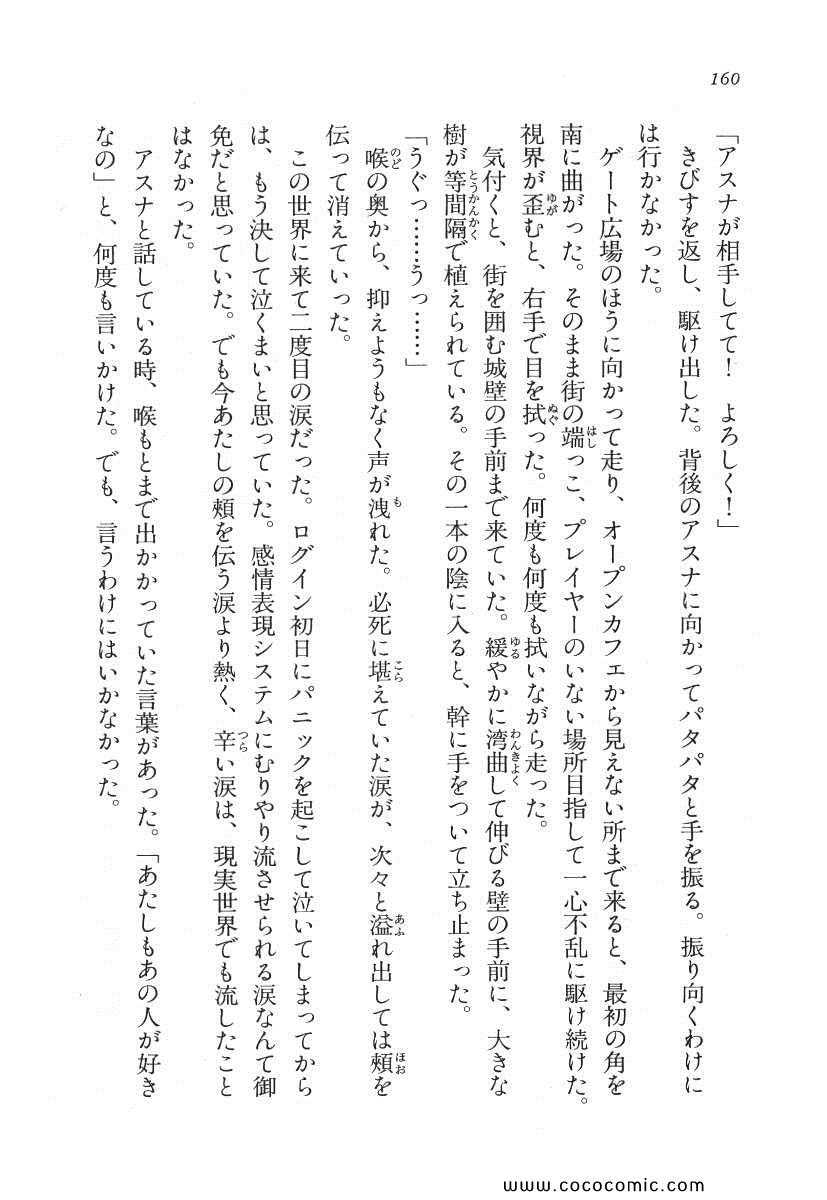 160
「アスナが相手してて！　よろしく！」
　きびすを返し、駆け出した。背後のアスナに向かってパタパタと手を振る。振り向くわけに
は行かなかった。
　ゲート広場のほうに向かって走り、オープンカフェから見えない所まで来ると、最初の角を
南に曲がった。そのまま街の端っこ、プレイヤーのいない場所目指して一心不乱に駆け続けた。
視界が歪むと、右手で目を拭った。何度も何度も拭いながら走った。
　気付くと、街を囲む城壁の手前まで来ていた。緩やかに湾曲して伸びる壁の手前に、大きな
樹が等間隔で植えられている。その一本の陰に入ると、幹に手をついて立ち止まった。
「うぐっ……うっ……」
　喉の奥から、抑えようもなく声が洩れた。必死に堪えていた涙が、次々と溢れ出しては頬を
伝って消えていった。
　この世界に来て二度目の涙だった。ログイン初日にパニックを起こして泣いてしまってから
は、もう決して泣くまいと思っていた。感情表現システムにむりやり流させられる涙なんて御
免だと思っていた。でも今あたしの頬を伝う涙より熱く、辛い涙は、現実世界でも流したこと
はなかった。
　アスナと話している時、喉もとまで出かかっていた言葉があった。「あたしもあの人が好き
なの」と、何度も言いかけた。でも、言うわけにはいかなかった。
www.cococomic.com